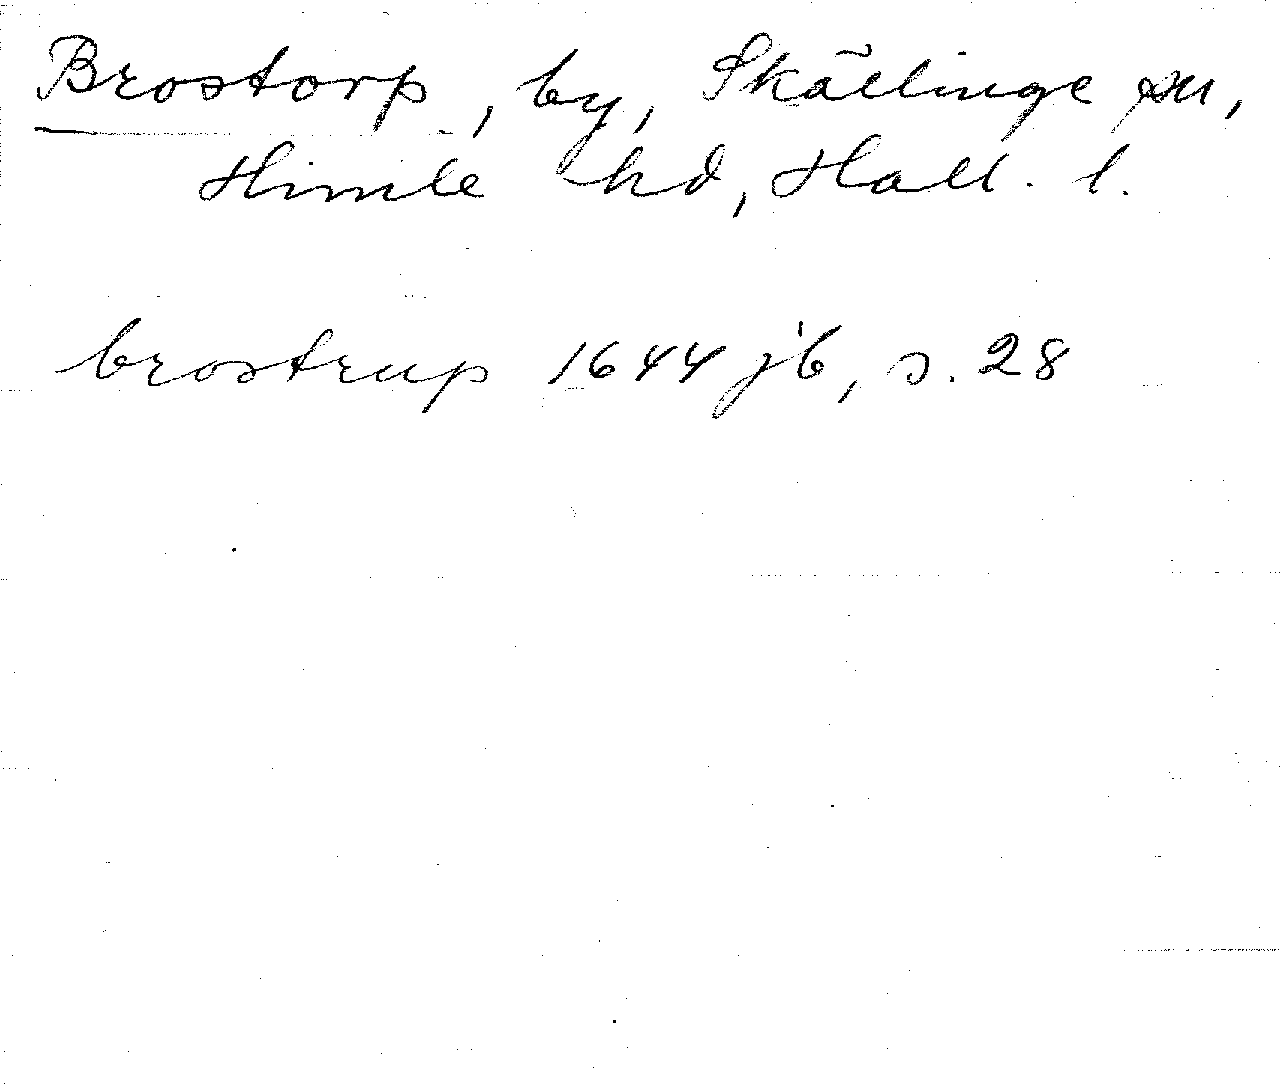 Brostorp, by, Skällinge sn,
Himle hd, Hall. l.
brostrup 1644 jb, s. 28